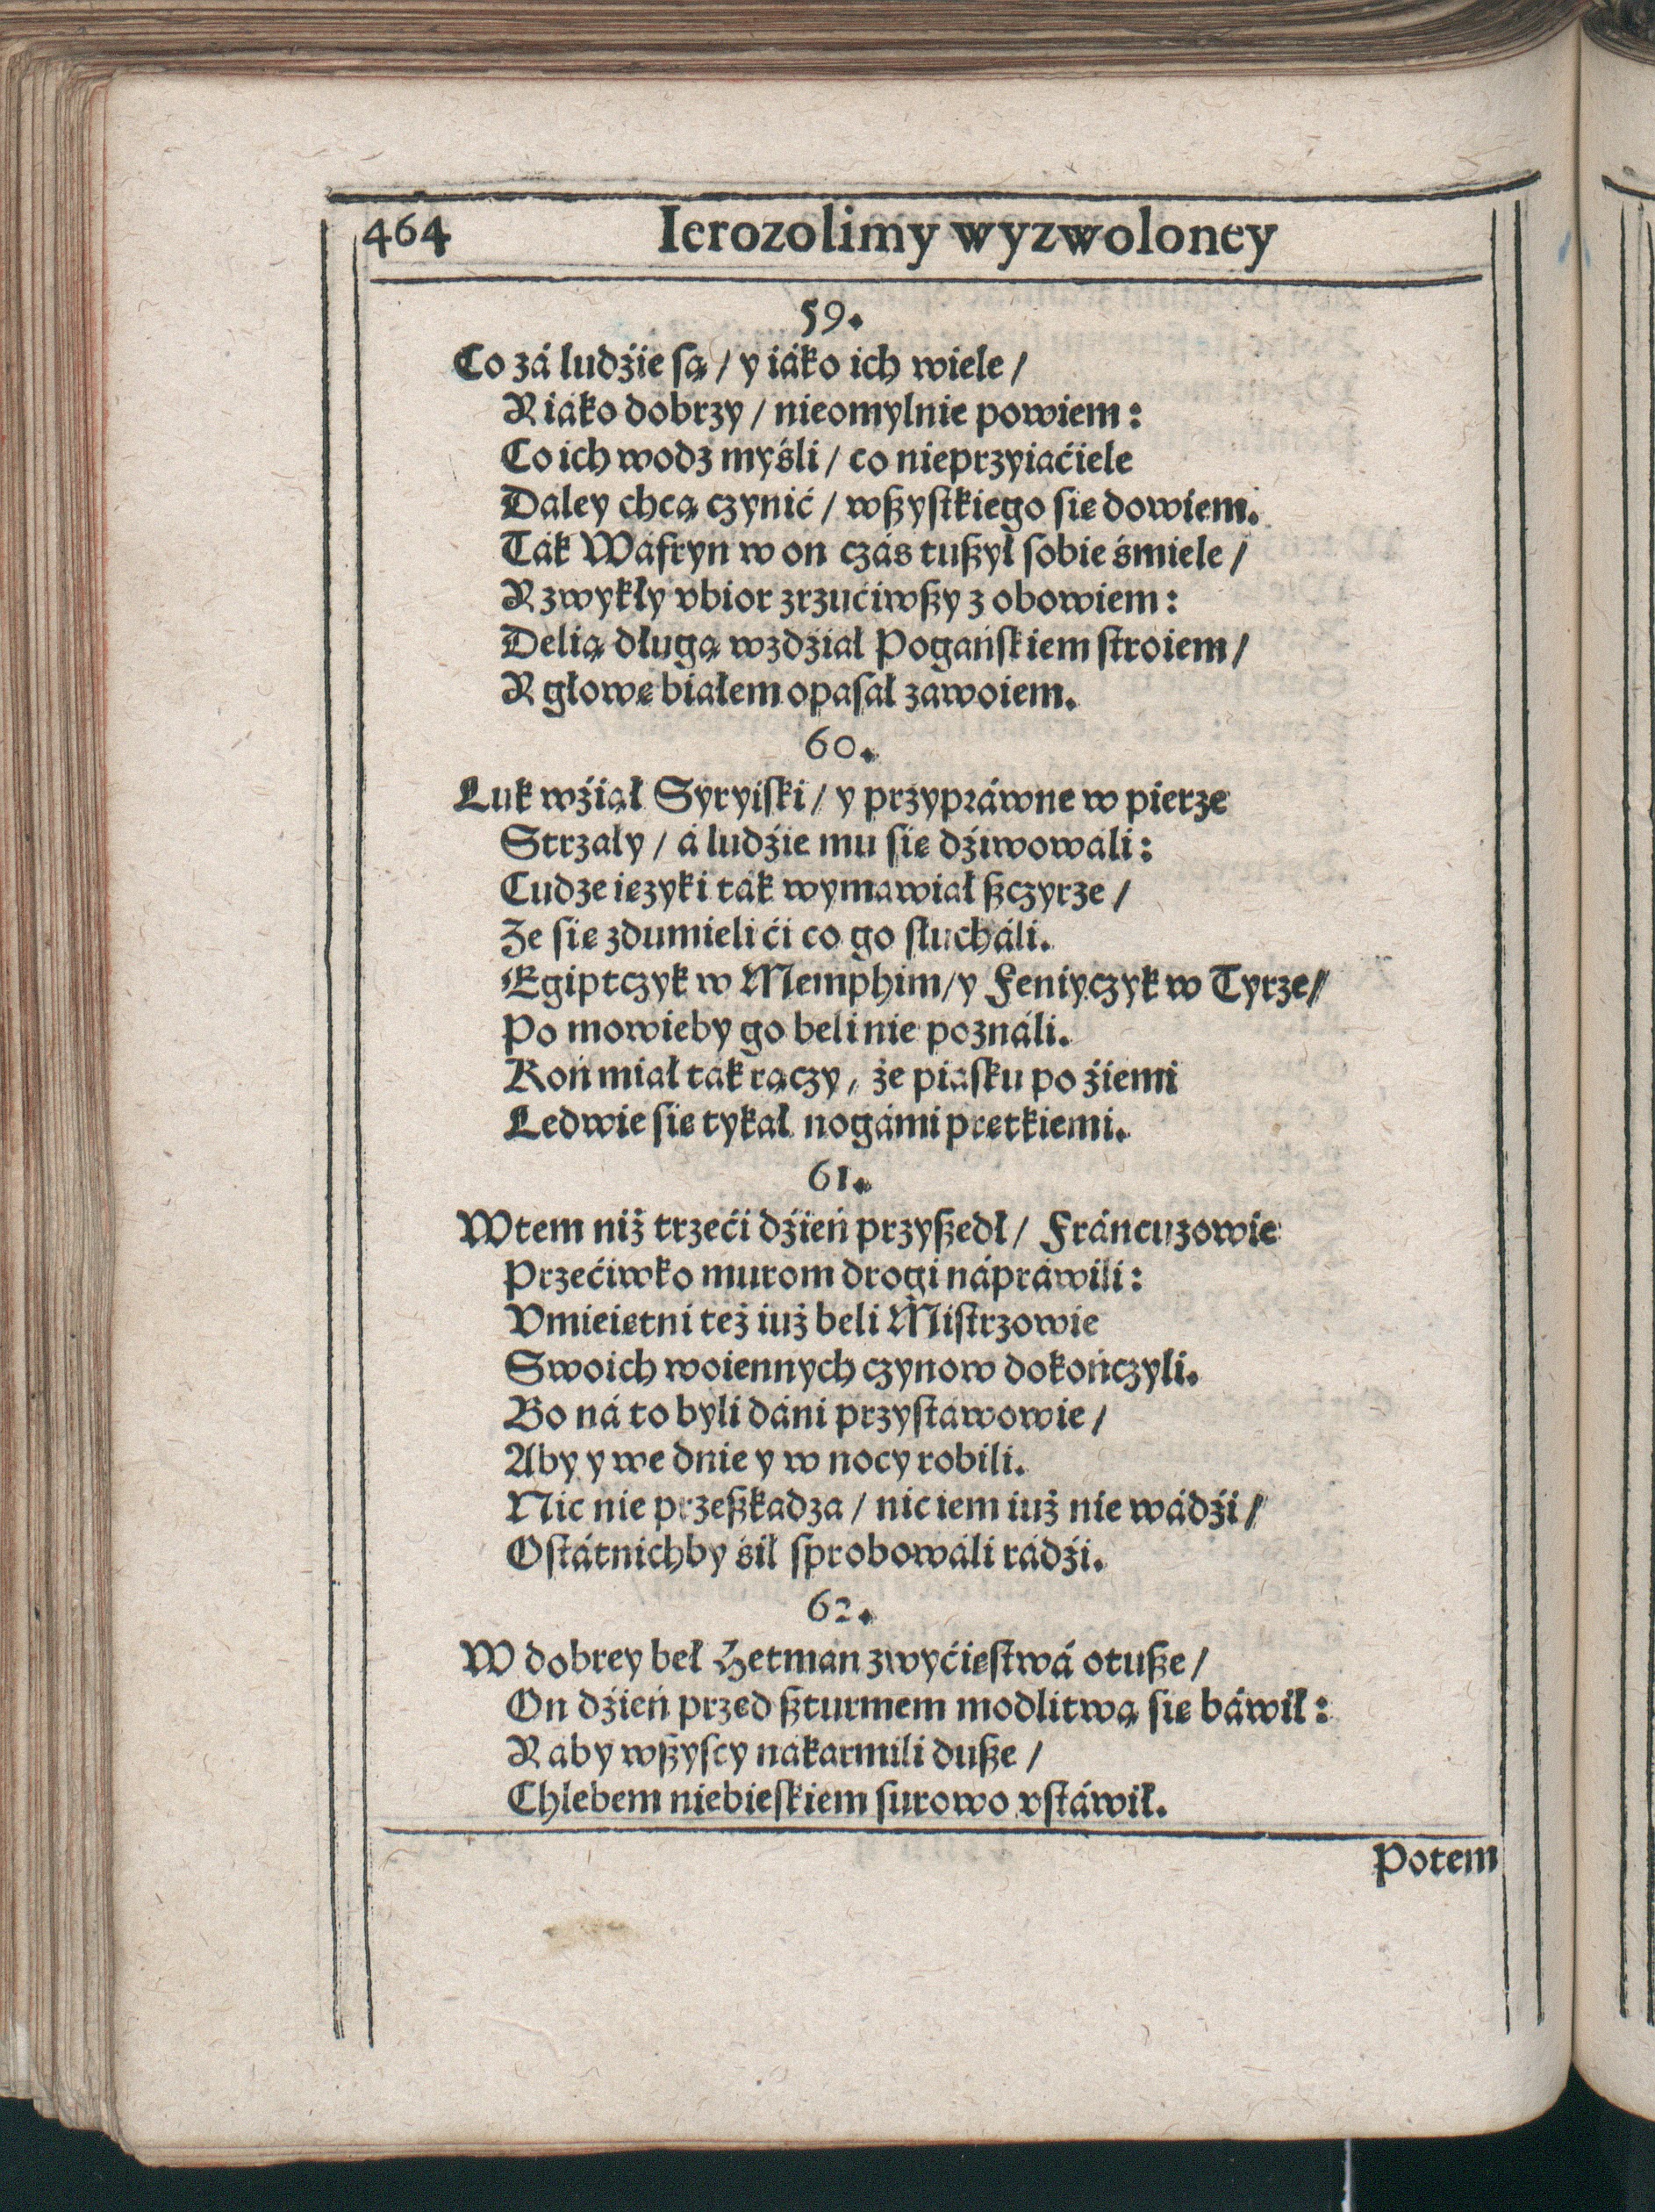 464 Ierozolimy wyzwoloney
59.
Co zá ludźie ſą / y iáko ich wiele /
Y iáko dobrzy / nieomylnie powiem:
Co ich wodz myśli / co nieprzyiaćiele
Daley chcą czynić / wßyſtkiego się dowiem.
Ták Wáfryn w on czás tußył ſobie śmiele /
Y zwykły vbior zrzućiwßy z obowiem:
Delią długą wzdźiał Pogáńſkiem ſtroiem /
Y głowę białem opaſał zawoiem.
60.
Łuk wźiął Syryiſki / y przypráwne w pierze
Strzały / á ludźie mu się dźiwowáli:
Cudze ięzyki ták wymawiał ßczyrze /
Że się zdumieli ći co go słucháli.
Egiptczyk w Memphim / y Feniyczyk w Tyrze /
Po mowieby go beli nie poználi.
Koń miał ták rączy / że piasku po źiemi
Ledwie się tykał nogámi prętkiemi.
61.
Wtem niż trzeći dźień przyßedł / Fráncuzowie
Przećiwko murom drogi nápráwili:
Vmieiętni też iuż beli Miſtrzowie
Swoich woiennych czynow dokończyli.
Bo ná to byli dáni przyſtáwowie /
Aby y we dnie y w nocy robili.
Nic nie przeßkadza / nic iem iuż nie wádźi /
Oſtátnichby śił ſprobowáli rádźi.
62.
W dobrey beł Hetman zwyćięſtwá otuße /
On dźień przed ßturmem modlitwą się báwił:
Y aby wßyſcy nákarmili duße /
Chlebem niebieſkiem ſurowo vſtáwił.
Potem